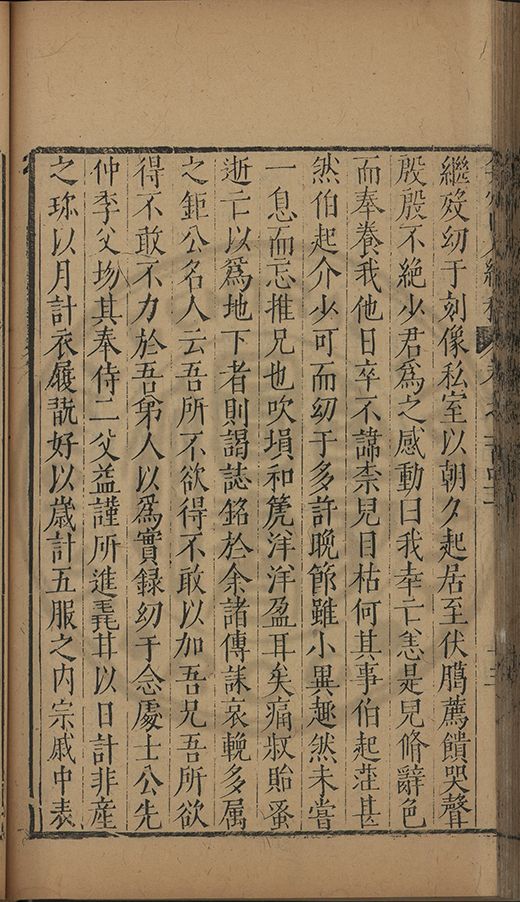 繼歿幼于刻像私室以朝夕起居至伏臈薦饋哭聲
殷殷不絶少君爲之感動曰我幸亡恙是兒脩辭色
而奉養我他日卒不諱柰兒目枯何其事伯起莊甚
然伯起介少可而幼于多許晩節雖小異趣然未嘗
一息而忘推兄也吹塤和箎洋洋盈耳矣痛叔貽蚤
逝亡以爲地下者則謁誌銘於余諸傳誄哀輓多属
之鉅公名人云吾所不欲得不敢以加吾兄吾所欲
得不敢不力於吾弟人以爲實録幼于念處士公先
仲季父歾其奉侍二父益謹所進毳甘以日計非産
之珎以月計衣履翫好以歳計五服之内宗戚中表